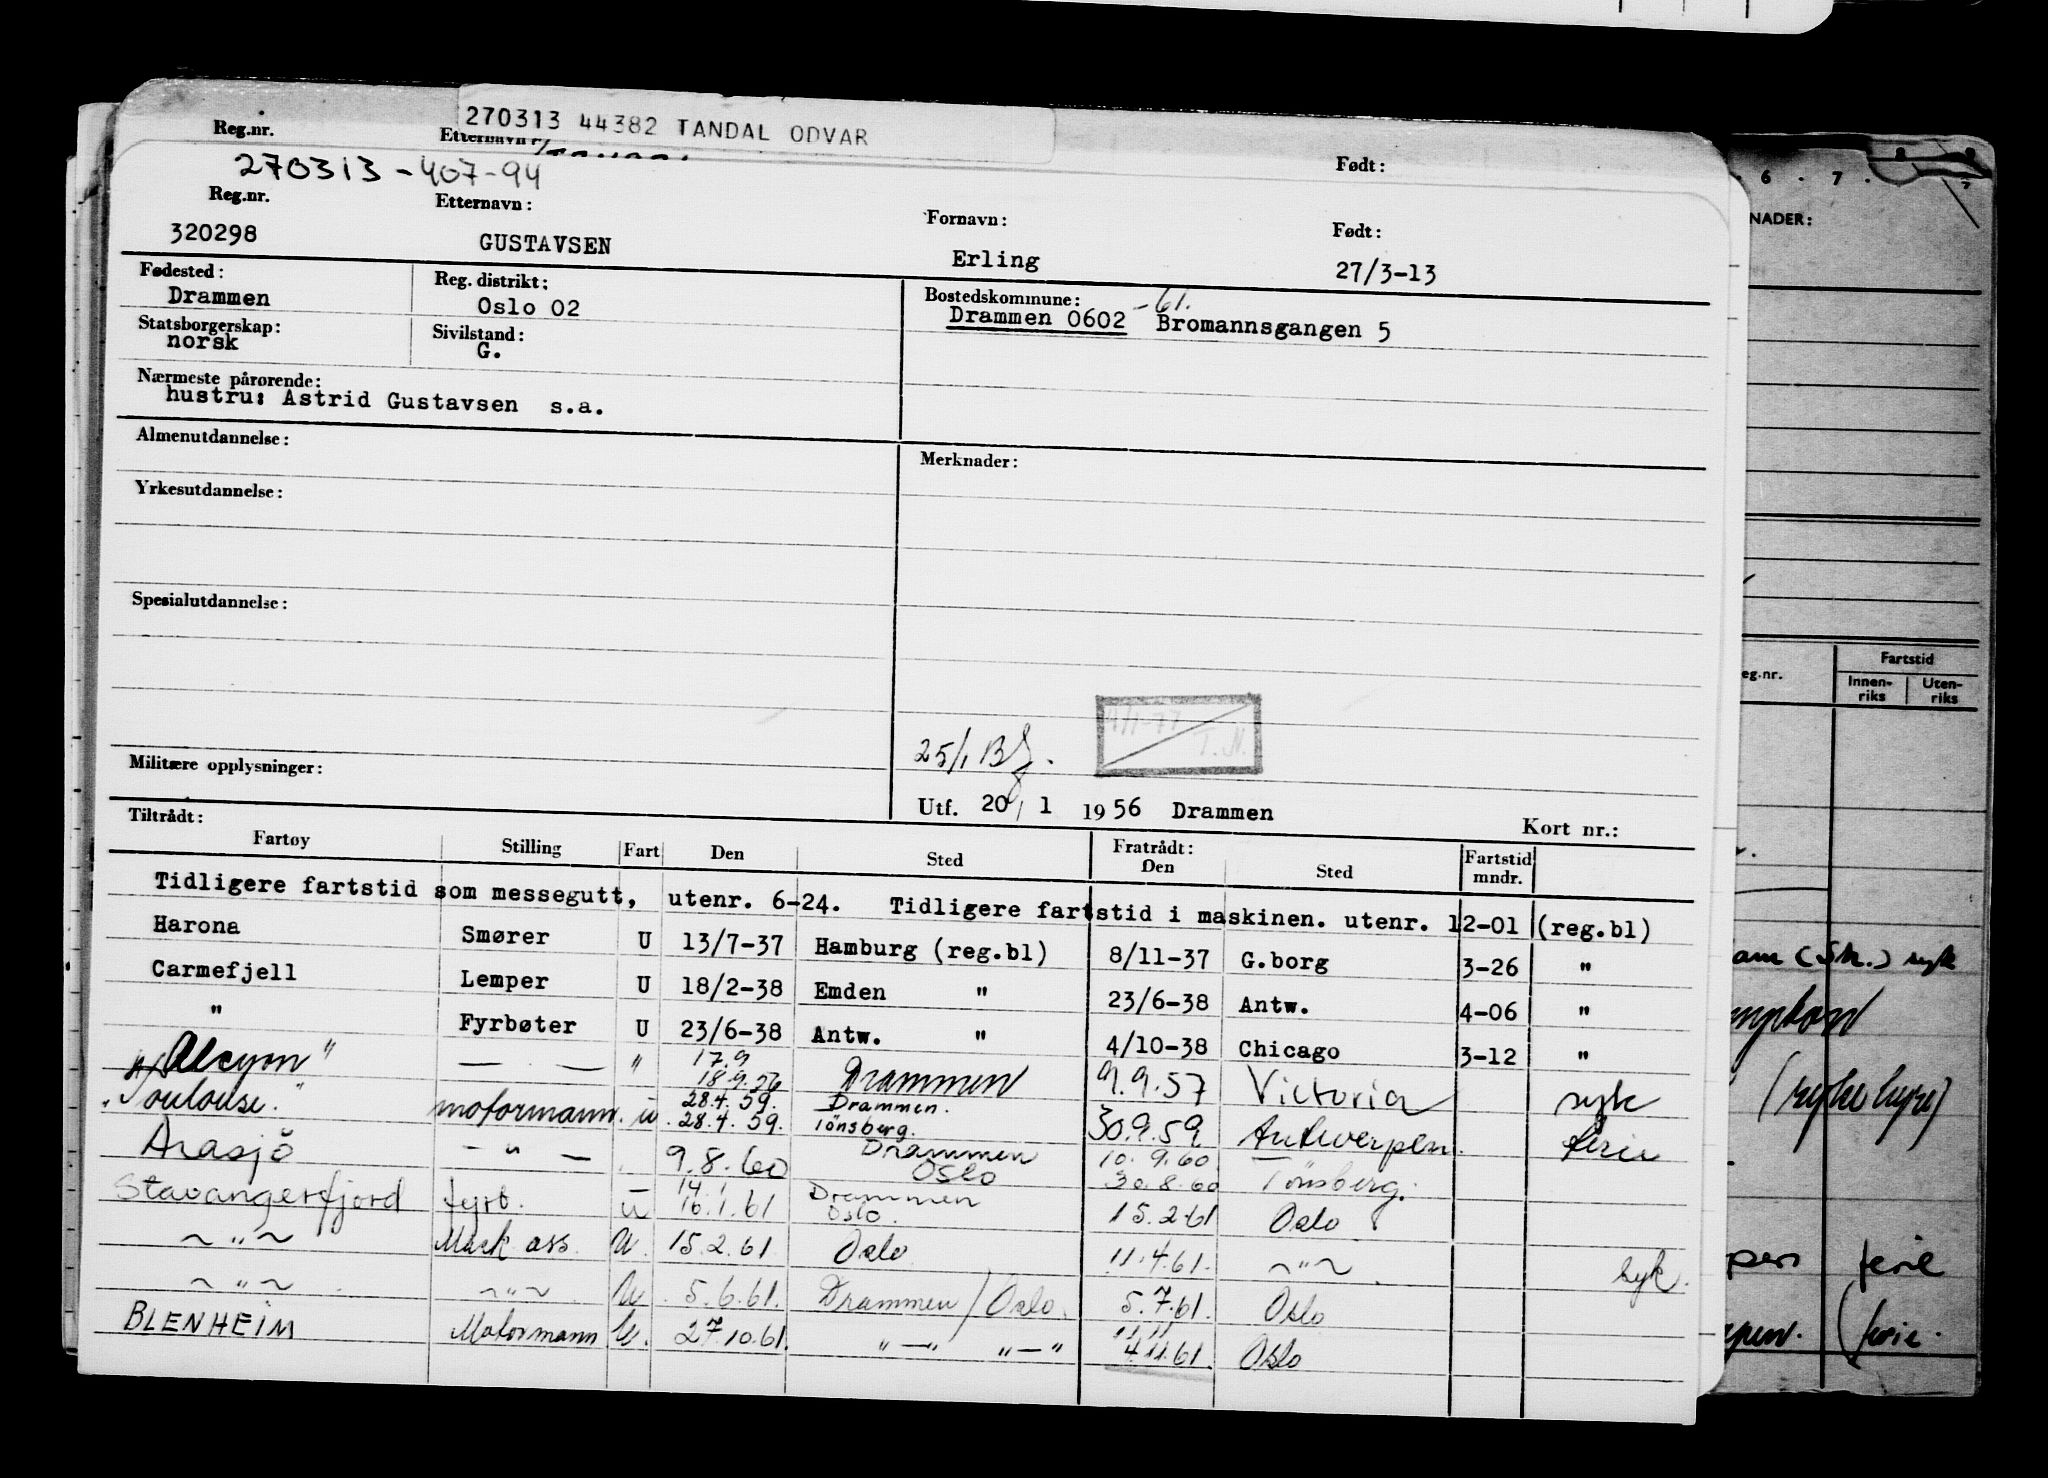 270313 44382 TANDAL ODVAR
Reg.nr. Etternavn: Født:
270313-407-94
Reg.nr. Etternavn: Fornavn: Født:
320298 GUSTAVSEN Erling 27/3-13
Fødested: Reg. distrikt: Bostedskommune: -61.
Drammen Oslo 02 Drammen 0602 Bromannsgangen 5
Statsborgerskap: Sivilstand:
norsk G.
Nærmeste pårørende:
hustru: Astrid Gustavsen s.a.
Almenutdannelse: Merknader:
Yrkesutdannelse:
Spesialutdannelse:
T.N.
25/1
Militære opplysninger:
Utf. 20/1 1956 Drammen Kort nr.:
Tiltrådt: Fratrådt:
Fartøy Stilling Fart Den Sted Den Sted Fartstid mndr.
Tidligere fartstid som messegutt, utenr. 6-24. Tidligere fartstid i maskinen. utenr. 12-01 (reg.bl)
Harona Smører U 13/7-37 Hamburg (reg.bl) 8/11-37 G.borg 3-26 "
Carmefjell Lemper U 18/2-38 Emden " 23/6-38 Antw. 4-06 "
" Fyrbøter U 23/6-38 Antw. " 4/10-38 Chicago 3-12 "
17.9
"Alcyon" — — " 18.9.56 Drammen 9.9.57 Victoria syk
28.4.59. Drammen.
"Toulouse." motormann. u. 28.4.59. Tönsberg. 30.9.59 Antwerpen ferie
Drammen 10.9.60
Arasjö — " — 9.8.60 Oslo 30.8.60 Tönsberg.
14.1 Drammen
Stavangerfjord fyrb. u 16.1.61 Oslo. 15.2.61 Oslo
~ " ~ Mask ass. U. 15.2.61 Oslo 11.4.61. ~ " ~ syk.
~ " ~ ~ " ~ U. 5.6.61. Drammen / Oslo. 5.7.61. Oslo
11.11
BLENHEIM Motormann U. 27.10.61. " — " " — " 4.11.61. Oslo
6. 7.
NADER:
eg.nr. Fartstid
Innen-riks Uten-riks
am (Sk.) syk
ferie
(ferie.